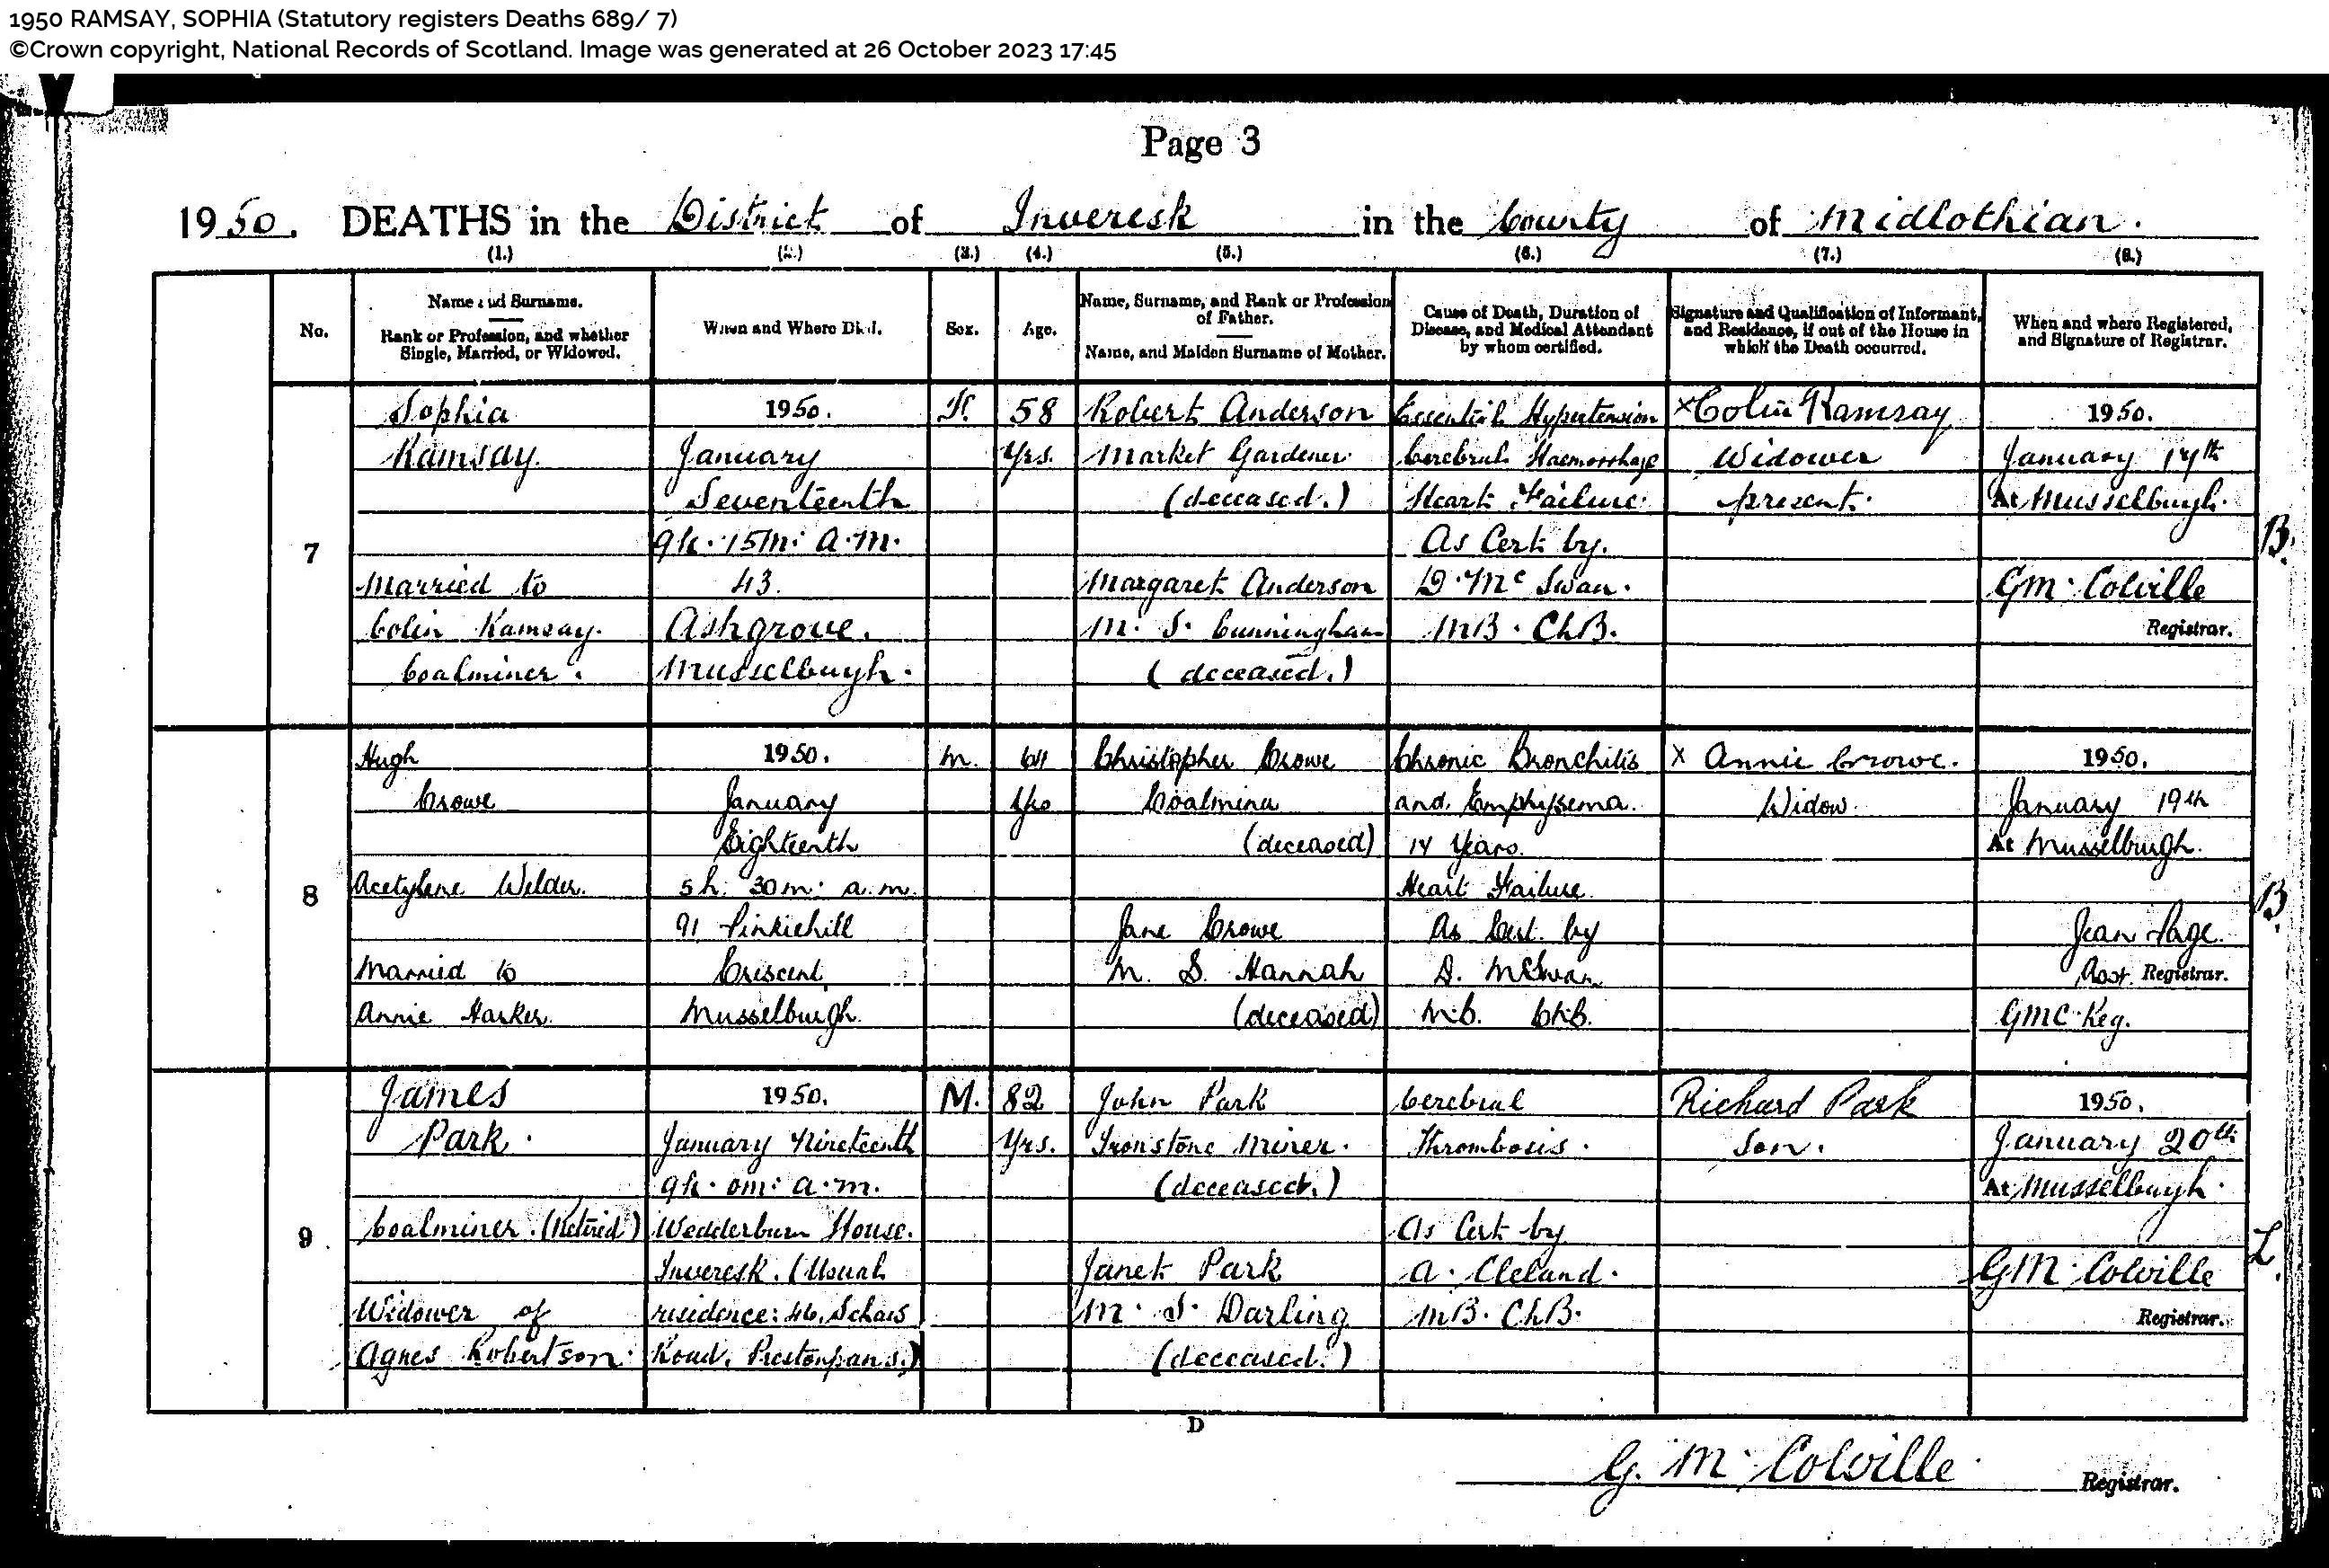 1950 RAMSAY, SOPHIA (Statutory registers Deaths 689/ 7)
©Crown copyright, National Records of Scotland. Image was generated at 26 October 2023 17:45
Page 3
1950. DEATHS in the District of Inveresk in the County of Midlothian.
(1.) (2.) (3.) (4.) (5.) (6.) (7.) (8.)
No.
Name and Surname.
Rank or Profession, and whether
Single, Married, or Widowed.
When and Where Died.
Sex.
Age.
Name, Surname, and Rank or Profession
of Father.
Name, and Maiden Surname of Mother.
Cause of Death, Duration of
Disease, and Medical Attendant
by whom certified.
Signature and Qualification of Informant,
and Residence, if out of the House in
which the Death occurred.
When and where Registered,
and Signature of Registrar.
7
Sophia
Ramsay.
Married to
Colin Ramsay.
Coalminer.
1950.
January
Seventeenth
9h. 15m. a.m.
43.
Ashgrove.
Musselburgh.
F.
58
Yrs.
Robert Anderson
Market Gardener.
(deceased.)
Margaret Anderson
M. S. Cunningham
(deceased.)
Essential Hypertension
Cerebral Haemorrhage
Heart Failure.
As Cert by.
D. Mc Swan.
MB. ChB.
x Colin Ramsay
Widower
present.
1950.
January 17th
At Musselburgh.
GM. Colville
Registrar.
B.
8
Hugh
Crowe
Acetylene Welder.
Married to
Annie Harker.
1950.
January
Eighteenth
5h. 30m. a.m.
91 Pinkiehill
Crescent,
Musselburgh.
M.
Yrs
Christopher Crowe
Coalminer
(deceased)
Jane Crowe
M. S. Hannah
(deceased)
Chronic Bronchitis
and Emphysema.
14 Years.
Heart Failure.
As Cert. by
D. McSwan
M.B. Ch.B.
x Annie Crowe.
Widow.
1950.
January 19th
At Musselburgh.
Jean Page.
Asst. Registrar.
GMC. Reg.
B.
9
James
Park.
Coalminer. (Retired)
Widower of
Agnes Robertson.
1950.
January Nineteenth
9h. 0m. a.m.
Wedderburn House.
Inveresk. (Usual
residence: 46, Schaws
Road, Prestonpans.)
M.
82
Yrs.
John Park
Ironstone Miner.
(deceased.)
Janet Park
M. S. Darling
(deceased.)
Cerebral
Thrombosis.
As Cert by
A. Cleland.
MB. ChB.
Richard Park
Son.
1950.
January 20th
At Musselburgh.
GM. Colville
Registrar.
L.
D
G. M. Colville.
Registrar.